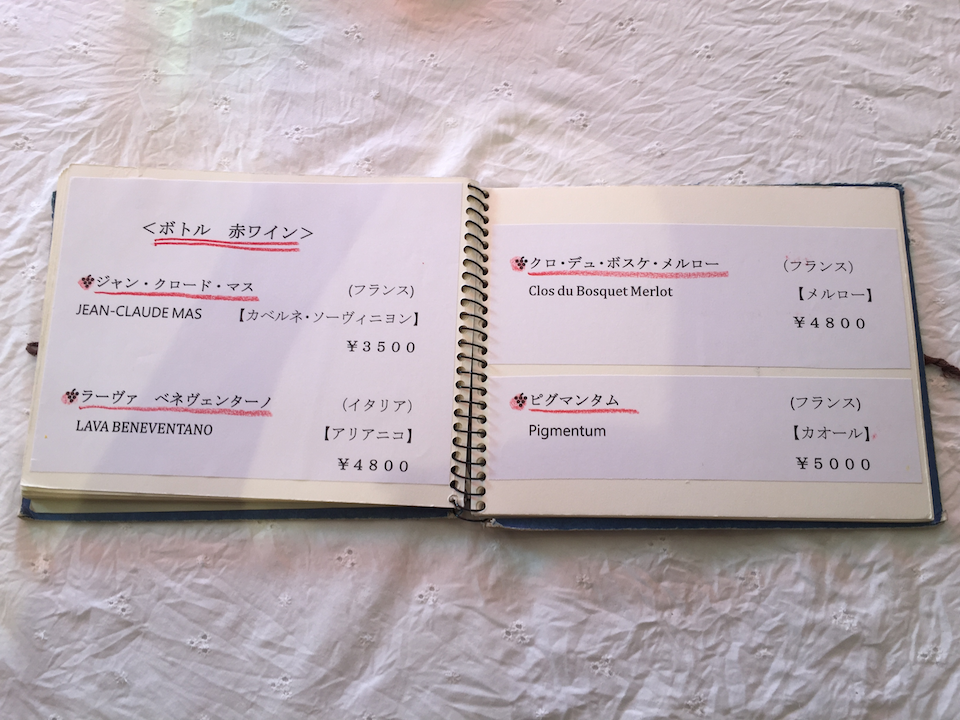 ＜ボトル　赤ワイン＞
ジャン・クロード・マス　(フランス)
JEAN-CLAUDE MAS　【カベルネ・ソーヴィニヨン】
￥３５００
ラーヴァ　ベネヴェンターノ　（イタリア）
LAVA BENEVENTANO　【アリアニコ】
￥４８００
クロ・デュ・ボスケ・メルロー　（フランス）
Clos du Bosquet Merlot　【メルロー】
￥４８００
ピグマンタム　(フランス)
Pigmentum　【カオール】
￥５０００